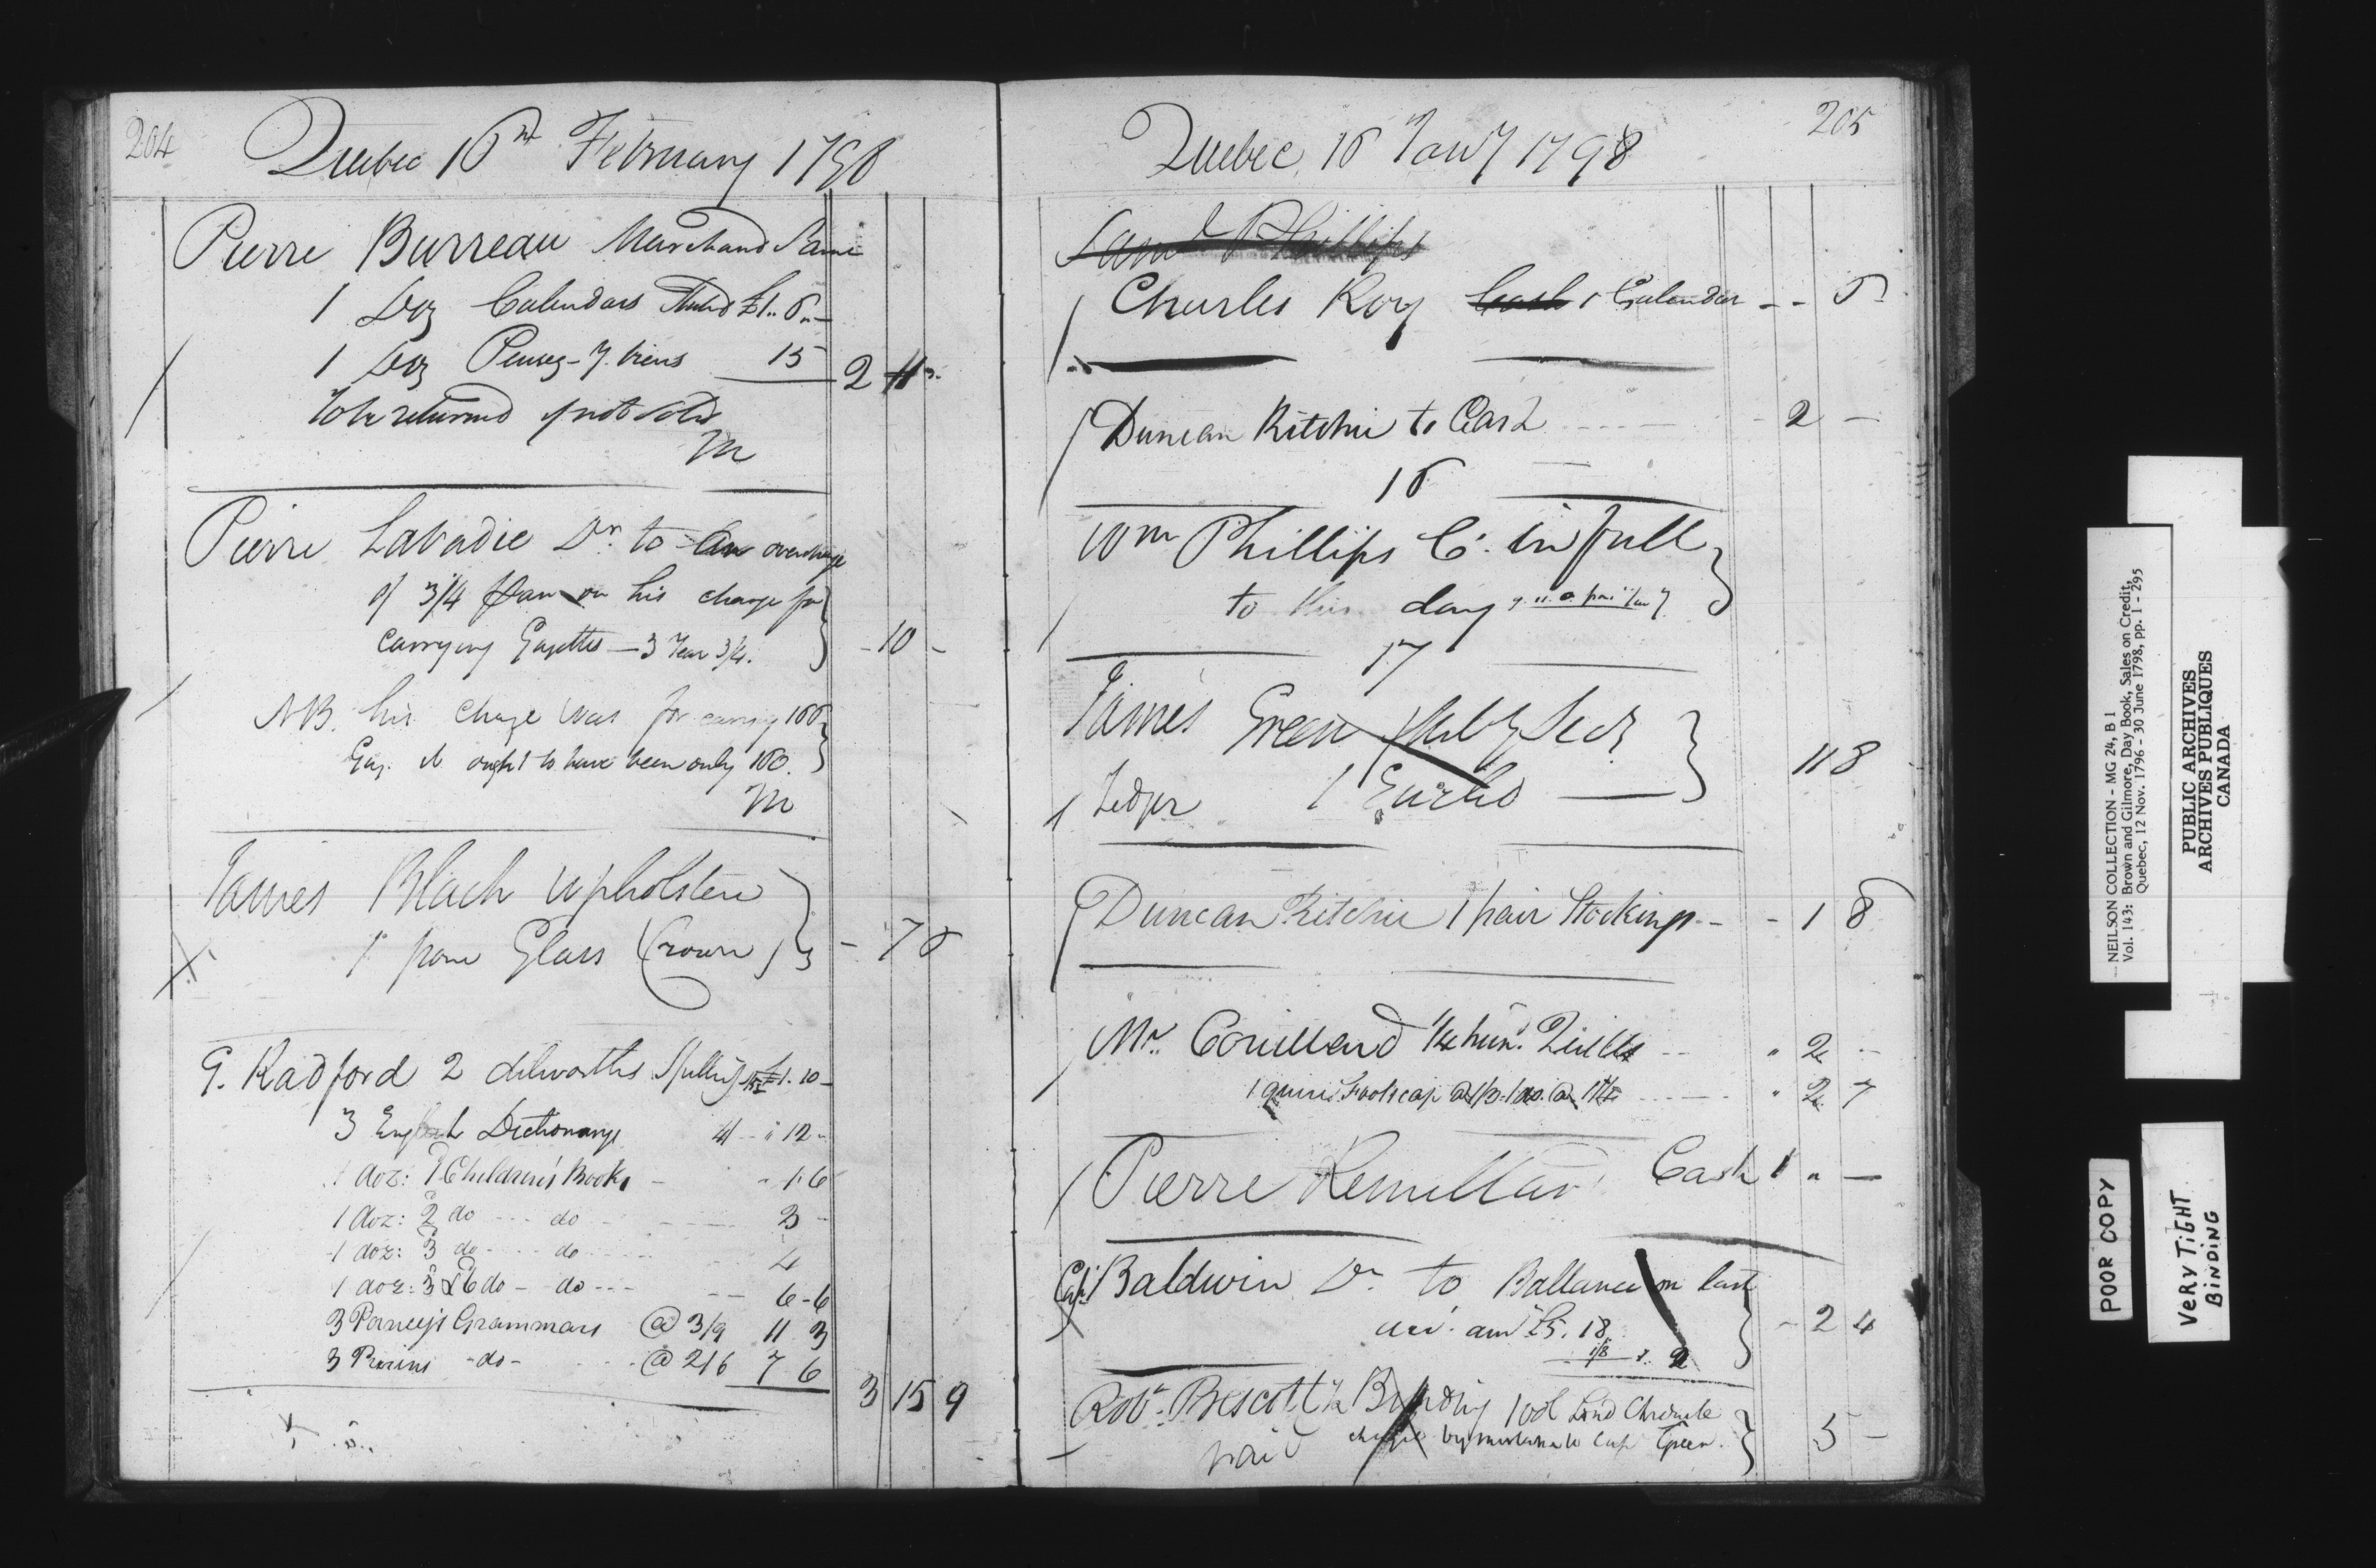 204
Quebec 16th February 1798
Pierre Burreau Marchand
1 Doz Calendars £1..6..–
1 Doz Pensez-y. biens 15
2 11 –
to be returned if not sold
M
Pierre Labadie Dr. to an overcharge
of 3/4 on his charge for
carrying Gazettes – 3 Year 3/4.
- 10 -
NB. his charge was for carryg
Gaz. it ought to have been only 100.
M
James Black Upholsterer
1 pane Glass (Crown)
- 7 6
G. Radford 2 dilworths Spelling £1. 10 –
3 English Dictionarys 4/ - " 12 -
1 doz: 1 Children's Books - - 1.6
1 doz: 2 do --- do - 3 -
1 doz: 3 do --- do 4
1 doz: 3 & 6 do - do --- 6 - 6
3 Grammars @ 3/9 11 3
3 -do- @ 2/6 7 6
3 15 9
205
Quebec, 16 1798
Saml Phillips
Charles Roy Cash 1 Calendar - - 6
Duncan Ritchie to Cash - 2 –
16
Wm Phillips Cr. in full
to this day
17
James Green Milty Secy
Ledger 1 Euclid –
11 8
Duncan Ritchie 1 pair Stockings - - 1 8
Mr. Couillard 1/4 hun. Quills -- " 2 --
1 quire Foolscap " 2 7
Pierre Remillard Cash 1 " –
Capt Baldwin Dr. to Ballance on last
acct. amt £5. 18
- 2 4
Robt. Prescott Binding 1 vol Lond Chronicle
charge by mistake to Capt Green.
paid
5 –
NEILSON COLLECTION - MG 24, B 1
Vol. 143: Brown and Gilmore, Day Book, Sales on Credit,
Quebec, 12 Nov. 1796 - 30 June 1798, pp. 1 - 295
PUBLIC ARCHIVES
ARCHIVES PUBLIQUES
CANADA
POOR COPY
VERY TIGHT
BINDING